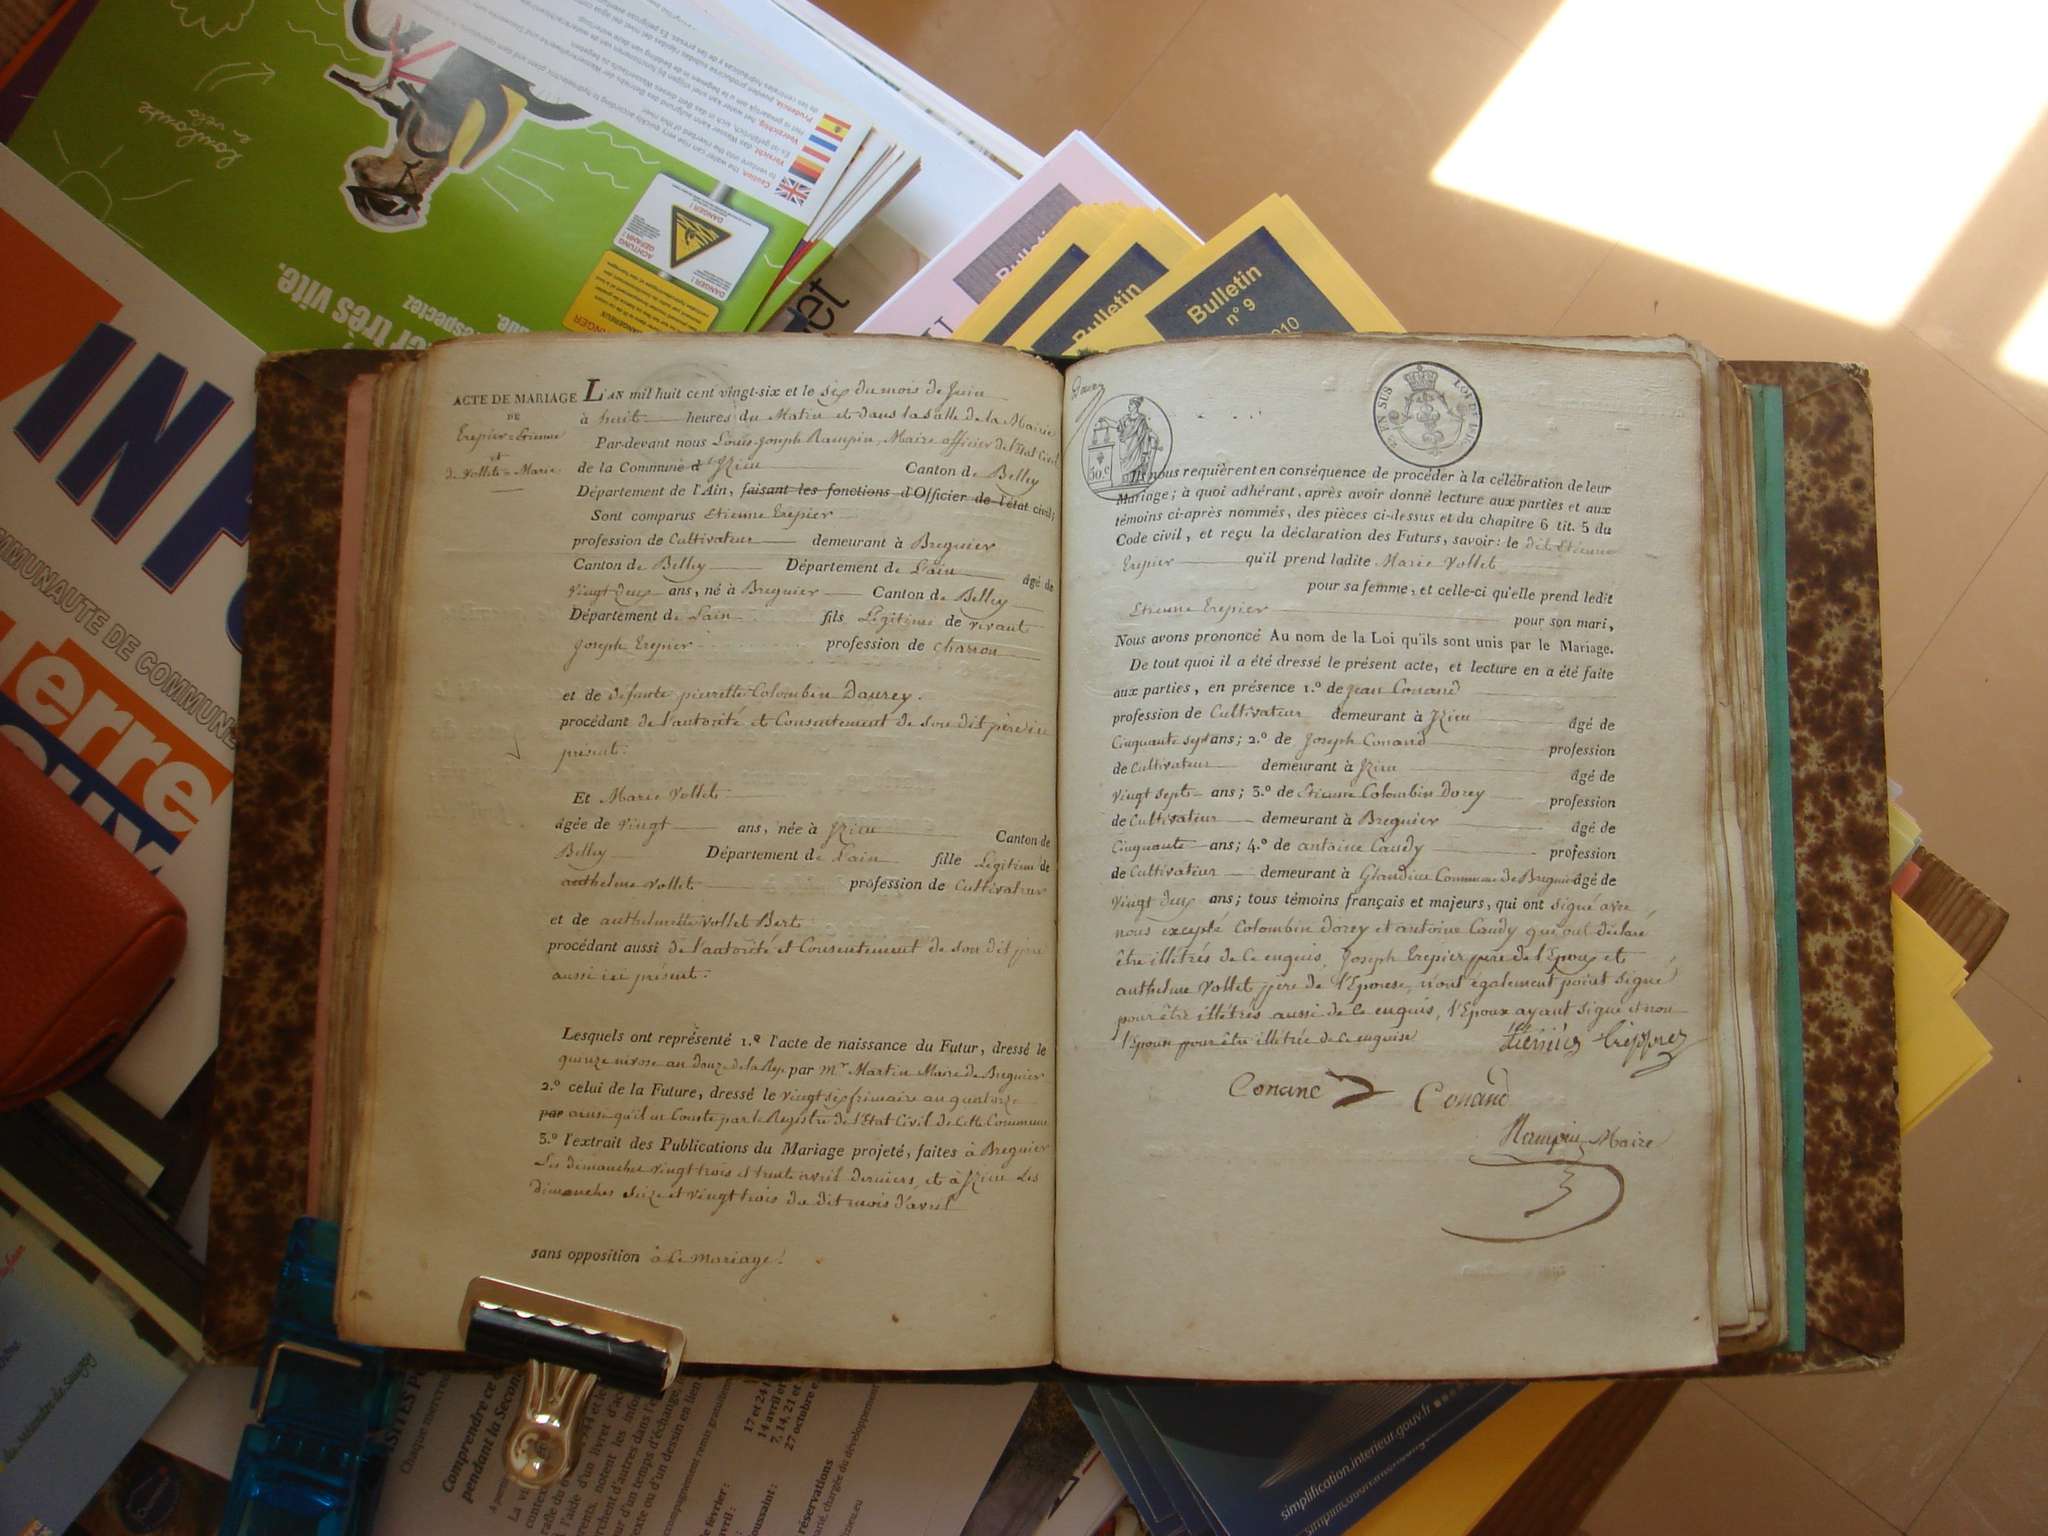 ACTE DE MARIAGE
DE
Erepier = Etienne
et
de Vollet = Marie
L'AN mil huit cent vingt-six et le six du mois de Juin
à huit heures du Matin et dans la salle de la Mairie
Par-devant nous Louis-Joseph Rampin, Maire officier de l'Etat Civil
de la Commune d'Izieu Canton de Belley
Département de l'Ain, faisant les fonctions d'Officier de l'état civil;
Sont comparus Etienne Erepier
profession de Cultivateur demeurant à Bregnier
Canton de Belley Département de l'ain âgé de
vingt deux ans, né à Bregnier Canton de Belley
Département de L'ain fils Légitime de vivant
Joseph Erepier profession de charron
et de défunte pierrette Colombin Daurey.
procédant de l'autorité et Consentement de son dit père ici
présent.
Et Marie Vollet
âgée de vingt ans, née à Izieu Canton de
Belley Département de L'ain fille Légitime de
anthelme Vollet profession de Cultivateur
et de anthelmette Vollet Bert
procédant aussi de l'autorité et Consentement de son dit père
aussi ici présent.
Lesquels ont représenté 1.º l'acte de naissance du Futur, dressé le
quinze nivose an douze de la Rep. par mr Martin Maire de Bregnier
2.º celui de la Future, dressé le vingt six frimaire an quatorze
par ainsi qu'il en Conste par le Registre de l'Etat Civil de Cette Commune
3.º l'extrait des Publications du Mariage projeté, faites à Bregnier
Les dimanches vingt trois et trente avril derniers, et à Izieu Les
dimanches seize et vingt trois du dit mois d'avril
sans opposition à Ce mariage.
EN SUS
LOI DE 1816
50.c
Ils nous requièrent en conséquence de procéder à la célébration de leur
Mariage; à quoi adhérant, après avoir donné lecture aux parties et aux
témoins ci-après nommés, des pièces ci-dessus et du chapitre 6 tit. 5 du
Code civil, et reçu la déclaration des Futurs, savoir: le dit Etienne
Erepier qu'il prend ladite Marie Vollet
pour sa femme, et celle-ci qu'elle prend ledit
Etienne Erepier pour son mari,
Nous avons prononcé Au nom de la Loi qu'ils sont unis par le Mariage.
De tout quoi il a été dressé le présent acte, et lecture en a été faite
aux parties, en présence 1.º de Jean Conand
profession de Cultivateur demeurant à Izieu âgé de
Cinquante sept ans; 2.º de Joseph Conand profession
de Cultivateur demeurant à Izieu âgé de
vingt sept ans; 3.º de Etienne Colombin Dorey profession
de Cultivateur demeurant à Bregnier âgé de
Cinquante ans; 4.º de antoine Caudy profession
de Cultivateur demeurant à Glandieu Commune de Bregnier âgé de
vingt deux ans; tous témoins français et majeurs, qui ont signé avec
nous excepté Colombin Dorey et antoine Caudy qui ont déclaré
être illétrés de Ce enquis, Joseph Erepier père de l'Epoux et
anthelme Vollet père de l'Epouse, n'ont également point signé
pour être illétrés aussi de Ce enquis, l'Epoux ayant signé et non
l'Epouse pour être illétrée de Ce enquise
Conand Conand
Rampin Maire
Bulletin
Bulletin
n° 9
INFO
COMMUNAUTE DE COMMUNE
erre
très vite.
respectez
Louloute
à vélo
DANGER !
ACHTUNG
GEFAHR !
Caution,
Vorsicht,
Voorzichtig,
Prudencia,
Comprendre ce
pendant la Secon
17 et 24
14 avril et
7, 14, 21 et
27 octobre e
février :
oussaint :
réservations
chargée du développement
simplification.interieur.gouv.fr